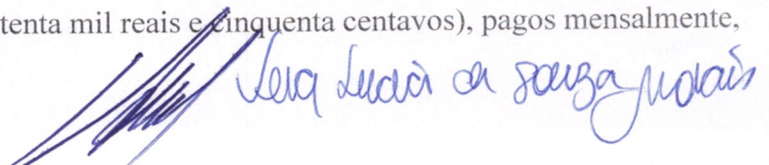 tenta mil reais e cinquenta centavos), pagos mensalmente,
Vera Lucia de Souza Morais